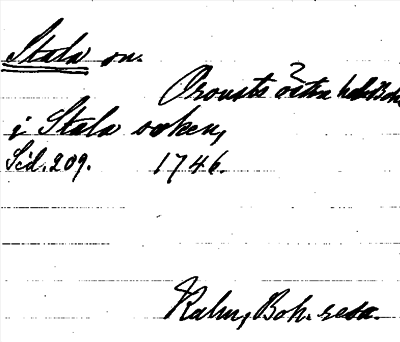 Stala sn.
Orousts östra hd Boh
i Stala socken,
Sid. 209. 1746.
Kalm, Boh. resa.